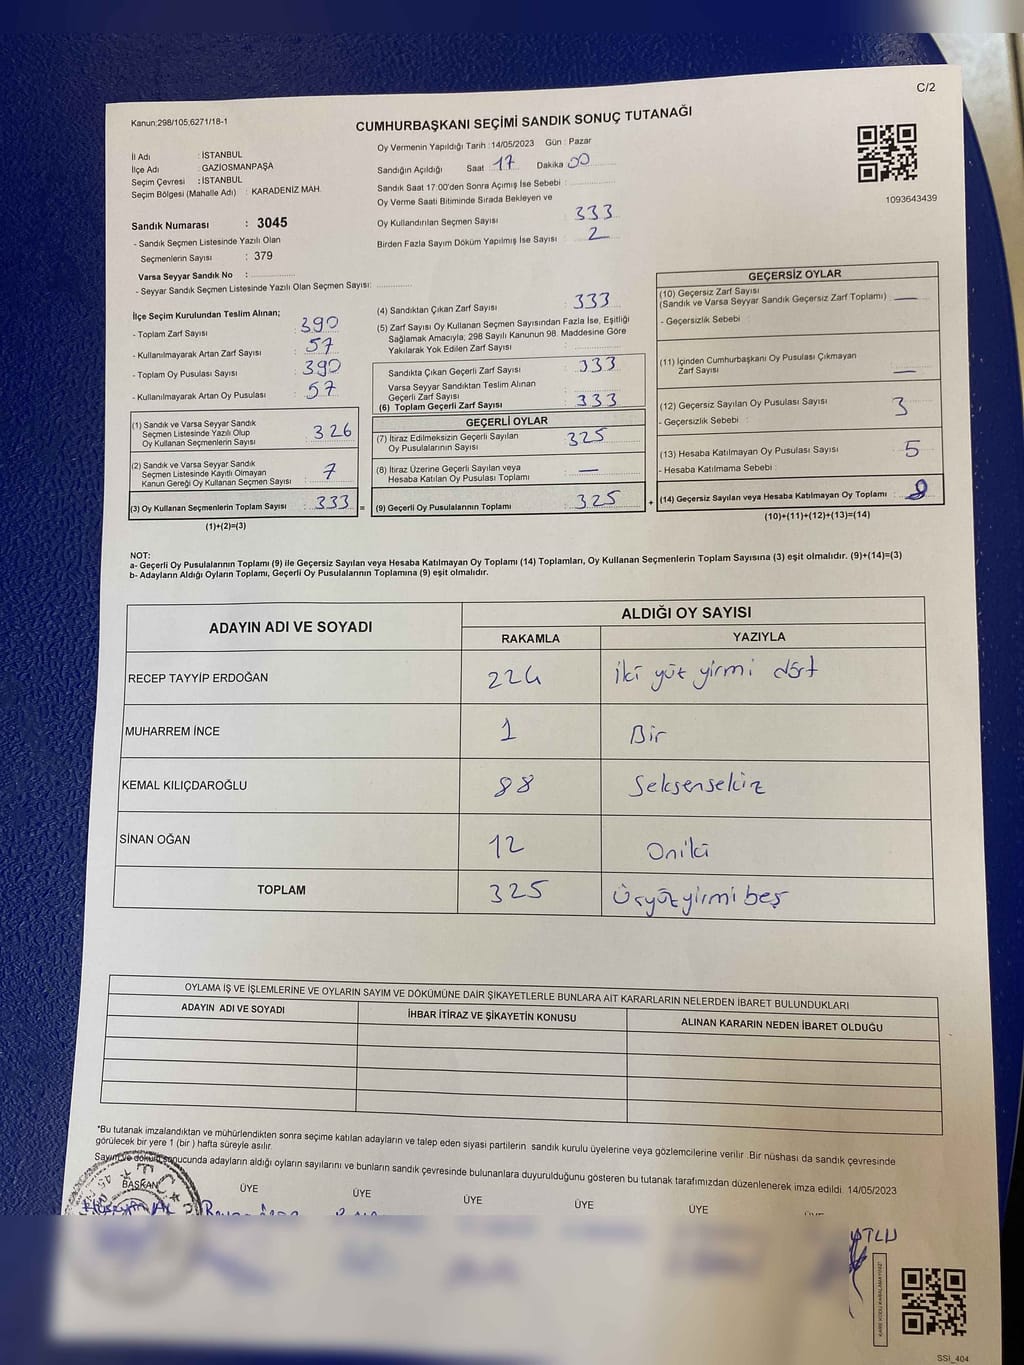 C/2
Kanun;298/105;6271/18-1
CUMHURBAŞKANI SEÇİMİ SANDIK SONUÇ TUTANAĞI
İl Adı : İSTANBUL
İlçe Adı : GAZİOSMANPAŞA
Seçim Çevresi : İSTANBUL
Seçim Bölgesi (Mahalle Adı) : KARADENİZ MAH.
Sandık Numarası : 3045
- Sandık Seçmen Listesinde Yazılı Olan
Seçmenlerin Sayısı : 379
Varsa Seyyar Sandık No :
- Seyyar Sandık Seçmen Listesinde Yazılı Olan Seçmen Sayısı:
Oy Vermenin Yapıldığı Tarih : 14/05/2023 Gün : Pazar
Sandığın Açıldığı Saat 17 Dakika 00
Sandık Saat 17:00'den Sonra Açımış İse Sebebi :
Oy Verme Saati Bitiminde Sırada Bekleyen ve
Oy Kullandırılan Seçmen Sayısı : 333
Birden Fazla Sayım Döküm Yapılmış İse Sayısı : 2
1093643439
İlçe Seçim Kurulundan Teslim Alınan;
- Toplam Zarf Sayısı : 390
- Kullanılmayarak Artan Zarf Sayısı : 57
- Toplam Oy Pusulası Sayısı : 390
- Kullanılmayarak Artan Oy Pusulası : 57
(1) Sandık ve Varsa Seyyar Sandık
Seçmen Listesinde Yazılı Olup
Oy Kullanan Seçmenlerin Sayısı : 326
(2) Sandık ve Varsa Seyyar Sandık
Seçmen Listesinde Kayıtlı Olmayan
Kanun Gereği Oy Kullanan Seçmen Sayısı : 7
(3) Oy Kullanan Seçmenlerin Toplam Sayısı : 333 =
(1)+(2)=(3)
(4) Sandıktan Çıkan Zarf Sayısı : 333
(5) Zarf Sayısı Oy Kullanan Seçmen Sayısından Fazla İse, Eşitliği
Sağlamak Amacıyla; 298 Sayılı Kanunun 98. Maddesine Göre
Yakılarak Yok Edilen Zarf Sayısı :
Sandıkta Çıkan Geçerli Zarf Sayısı : 333
Varsa Seyyar Sandıktan Teslim Alınan
Geçerli Zarf Sayısı :
(6) Toplam Geçerli Zarf Sayısı : 333
GEÇERLİ OYLAR
(7) İtiraz Edilmeksizin Geçerli Sayılan
Oy Pusulasının Sayısı : 325
(8) İtiraz Üzerine Geçerli Sayılan veya
Hesaba Katılan Oy Pusulası Toplamı : —
(9) Geçerli Oy Pusulalarının Toplamı : 325 +
GEÇERSİZ OYLAR
(10) Geçersiz Zarf Sayısı
(Sandık ve Varsa Seyyar Sandık Geçersiz Zarf Toplamı) : —
- Geçersizlik Sebebi :
(11) İçinden Cumhurbaşkanı Oy Pusulası Çıkmayan
Zarf Sayısı : —
(12) Geçersiz Sayılan Oy Pusulası Sayısı : 3
- Geçersizlik Sebebi :
(13) Hesaba Katılmayan Oy Pusulası Sayısı : 5
- Hesaba Katılmama Sebebi :
(14) Geçersiz Sayılan veya Hesaba Katılmayan Oy Toplamı :
(10)+(11)+(12)+(13)=(14)
NOT:
a- Geçerli Oy Pusulalarının Toplamı (9) ile Geçersiz Sayılan veya Hesaba Katılmayan Oy Toplamı (14) Toplamları, Oy Kullanan Seçmenlerin Toplam Sayısına (3) eşit olmalıdır. (9)+(14)=(3)
b- Adayların Aldığı Oyların Toplamı, Geçerli Oy Pusulalarının Toplamına (9) eşit olmalıdır.
ADAYIN ADI VE SOYADI ALDIĞI OY SAYISI
RAKAMLA YAZIYLA
RECEP TAYYİP ERDOĞAN 224 İki yüz yirmi dört
MUHARREM İNCE 1 Bir
KEMAL KILIÇDAROĞLU 88 Seksensekiz
SİNAN OĞAN 12 Oniki
TOPLAM 325 Üçyüzyirmi beş
OYLAMA İŞ VE İŞLEMLERİNE VE OYLARIN SAYIM VE DÖKÜMÜNE DAİR ŞİKAYETLERLE BUNLARA AİT KARARLARIN NELERDEN İBARET BULUNDUKLARI
ADAYIN ADI VE SOYADI İHBAR İTİRAZ VE ŞİKAYETİN KONUSU ALINAN KARARIN NEDEN İBARET OLDUĞU
*Bu tutanak imzalandıktan ve mühürlendikten sonra seçime katılan adayların ve talep eden siyasi partilerin sandık kurulu üyelerine veya gözlemcilerine verilir. Bir nüshası da sandık çevresinde
görülecek bir yere 1 (bir ) hafta süreyle asılır.
Sayım ve döküm sonucunda adayların aldığı oyların sayılarını ve bunların sandık çevresinde bulunanlara duyurulduğunu gösteren bu tutanak tarafımızdan düzenlenerek imza edildi. 14/05/2023
BAŞKAN ÜYE ÜYE ÜYE ÜYE ÜYE
KARE KODU KARALAMAYINIZ
SSİ_404